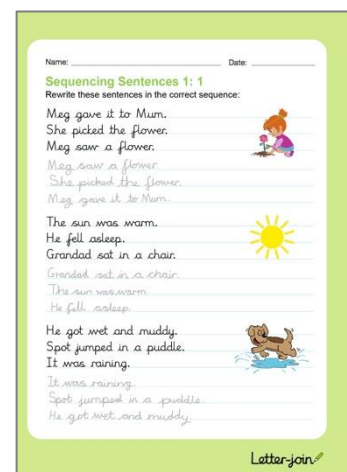 Name: Date:
Sequencing Sentences 1: 1
Rewrite these sentences in the correct sequence:
Meg gave it to Mum.
She picked the flower.
Meg saw a flower.
Meg saw a flower
She picked the flower.
Meg gave it to Mum.
The sun was warm.
He fell asleep.
Grandad sat in a chair.
Grandad sat in a chair.
The sun was warm.
He fell asleep.
He got wet and muddy.
Spot jumped in a puddle.
It was raining.
It was raining.
Spot jumped in a puddle.
He got wet and muddy.
Letter-join